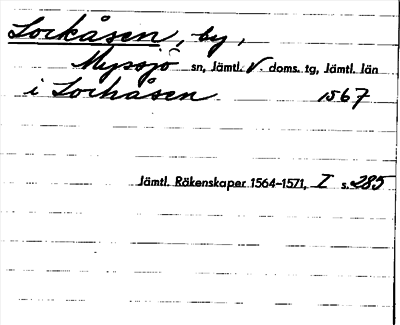 Lorkåsen, by,
Myssjö sn, Jämtl. V. doms. tg, Jämtl. län
i Lorhåsen 1567
Jämtl. Räkenskaper 1564–1571, I s. 285